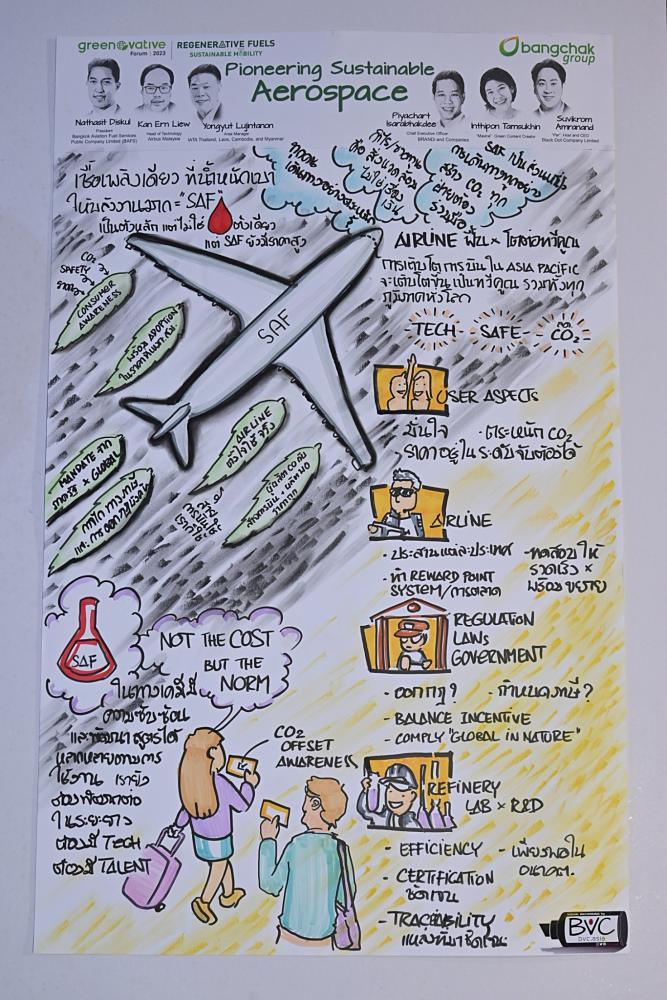 greenovative
Forum | 2023
REGENERATIVE FUELS
SUSTAINABLE MOBILITY
bangchak
group
Pioneering Sustainable
Aerospace
Nathasit Diskul
President
Bangkok Aviation Fuel Services
Public Company Limited (BAFS)
Kan Ern Liew
Head of Technology
Airbus Malaysia
Yongyut Lujintanon
Area Manager
IATA Thailand, Laos, Cambodia, and Myanmar
Piyachart
Isarabhakdee
Chief Executive Officer
BRANDi and Companies
Inthipon Tamsukhin
Suvikrom
Amranand
Black Dot Company Limited
เชื้อเพลิงเดียว ที่น้ำหนักเบา
ให้พลังงานมาก = "SAF"
เป็นตัวหลัก แต่ไม่ใช่ ตัวเดียว
แต่ SAF ยังมีราคาสูง
AIRLINE ฟื้น × โตต่อทวีคูณ
การเติบโตการบินใน ASIA PACIFIC
จะเติบโตขึ้นเป็นทวีคูณ รวมทั้งทุก
ภูมิภาคทั่วโลก
TECH - SAFE - CO₂
CO₂
SAFETY
ราคา
CONSUMER
AWARENESS
พร้อม ADOPTION
SAF
USER ASPECTS
มั่นใจ · ตระหนัก CO₂
ราคาอยู่ในระดับจับต้องได้
MANDATE จาก
ภาครัฐ × GLOBAL
AIRLINE
ตัวใช้จริง
AIRLINE
- ประสานแต่ละประเทศ
- ทำ REWARD POINT
SYSTEM/การตลาด
- ทดสอบให้
รวดเร็ว ×
พร้อมขยาย
SAF
NOT THE COST
BUT THE
NORM
REGULATION
LAWS
GOVERNMENT
- ออกกฎ? - กำหนดภาษี?
- BALANCE INCENTIVE
- COMPLY "GLOBAL IN NATURE"
ในทางเคมีมี
ความซับซ้อน
และพัฒนาสูตรได้
หลากหลายตามการ
ใช้งาน เรายัง
ต้องพัฒนาต่อ
ในระยะยาว
ต้องมี TECH
ต้องมี TALENT
CO2
OFFSET
AWARENESS
REFINERY
LAB × R&D
- EFFICIENCY
- เพียงพอใน
อนาคต.
- CERTIFICATION
ชัดเจน
- TRACEABILITY
แหล่งที่มาชัดเจน
BVC